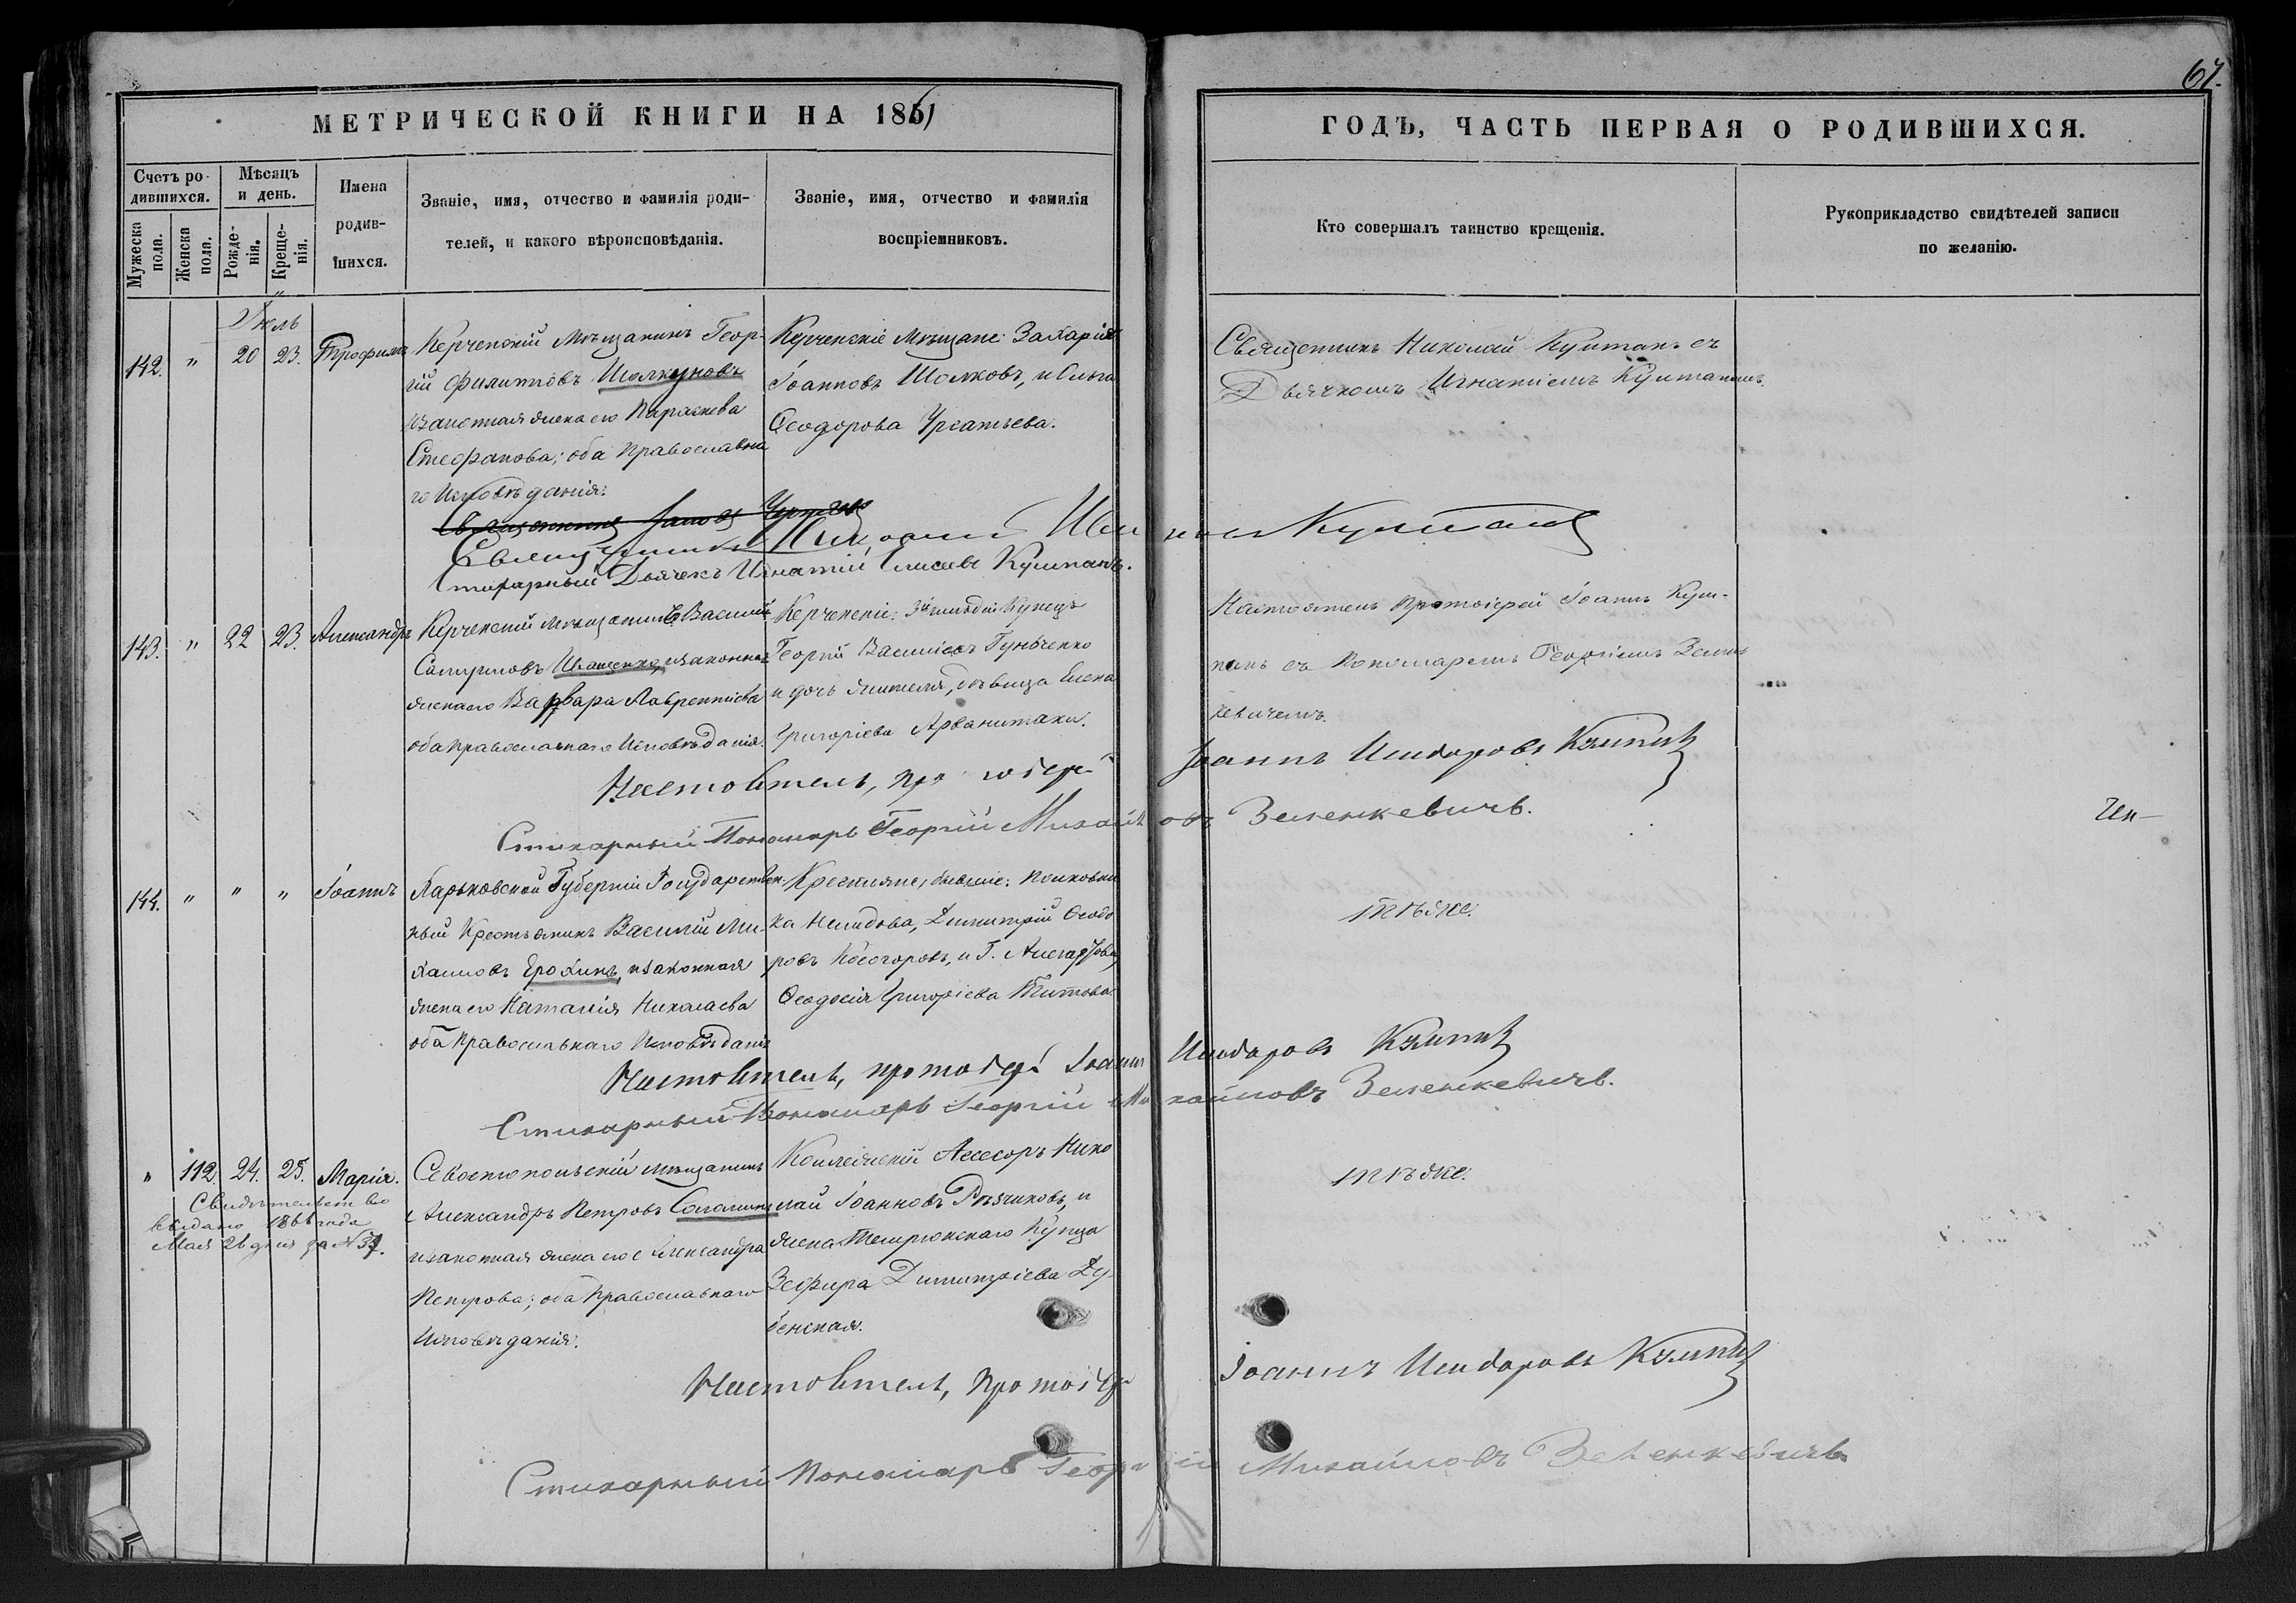 67.
МЕТРИЧЕСКОЙ КНИГИ НА 1861
ГОДЪ, ЧАСТЬ ПЕРВАЯ О РОДИВШИХСЯ.
Счетъ ро-
дившихся.
Мужеска пола.
Женска пола.
Мѣсяцъ
и день.
Рожде-
нія.
Креще-
нія.
Имена
родив-
шихся.
Званіе, имя, отчество и фамилія роди-
телей, и какого вѣроисповѣданія.
Званіе, имя, отчество и фамилія
воспріемниковъ.
Кто совершалъ таинство крещенія.
Рукоприкладство свидѣтелей записи
по желанію.
142. " 20 23. Трофимъ
Керченскій Мѣщанинъ Геор-
гій Филиповъ Шолкуновъ
и законная жена его Параскева
Стефанова; оба Православна
го Исповѣданія.
Керченскіе Мѣщане: Захарія
Іоанновъ Шолковъ, и Ольга
Ѳеодорова
Священникъ Николай Кумпанъ съ
Дьячкомъ Игнатіемъ Кумпаномъ.
Священникъ Николай Кумпанъ
Стихарный Дьячекъ Игнатій Елисеевъ Кумпанъ.
143. " 22 23. Александръ
Керченскій мѣщанинъ Василій
Иващенко, и законная
жена его Варвара Лаврентіева
оба православнаго Исповѣданія.
Керченскіе: 3й гильдіи Купецъ
Георгій Василіевъ Гунченко
и дочь жителя, дѣвица Елена
Григоріева Арванитаки.
Настоятель Протоіерей Іоаннъ Кум-
панъ съ Пономаремъ Георгіемъ Зелен
кевичемъ.
Настоятель, протоіерей Іоаннъ Исидоровъ Кумпанъ
Стихарный Пономарь Георгій Михайловъ Зеленкевичъ.
144. " " " Іоаннъ
Харьковской Губерніи Государствен-
ный Крестьянинъ Василій Ми-
хаиловъ Ерохинъ, и законная
жена его Наталія Николаева
оба Православнаго Исповѣданія
Крестьяне, бывшіе: полковни
ка Нелидова, Димитрій Ѳеодо
ровъ Косогоровъ, и Г.
Ѳеодосія Григоріева Титова.
Тѣже.
Настоятель, протоіерей Іоаннъ Исидоровъ Кумпанъ
Стихарный Пономарь Георгій Михайловъ Зеленкевичъ.
" 112. 24. 25. Марія.
Свидѣтельство
выдано 1866 года
Мая 26 дня за № 37.
Севостопольскій мѣщанинъ
Александръ Петровъ
и законная жена его Александра
Петрова; оба Православнаго
Исповѣданія.
Коллежскій Ассесоръ Нико
лай Іоанновъ Рѣзчиковъ, и
жена Темрюкскаго Купца
Зефира Димитріева Ду-
бенская.
Тѣже.
Настоятель, протоіерей Іоаннъ Исидоровъ Кумпанъ
Стихарный Пономарь Георгій Михайловъ Зеленкевичъ